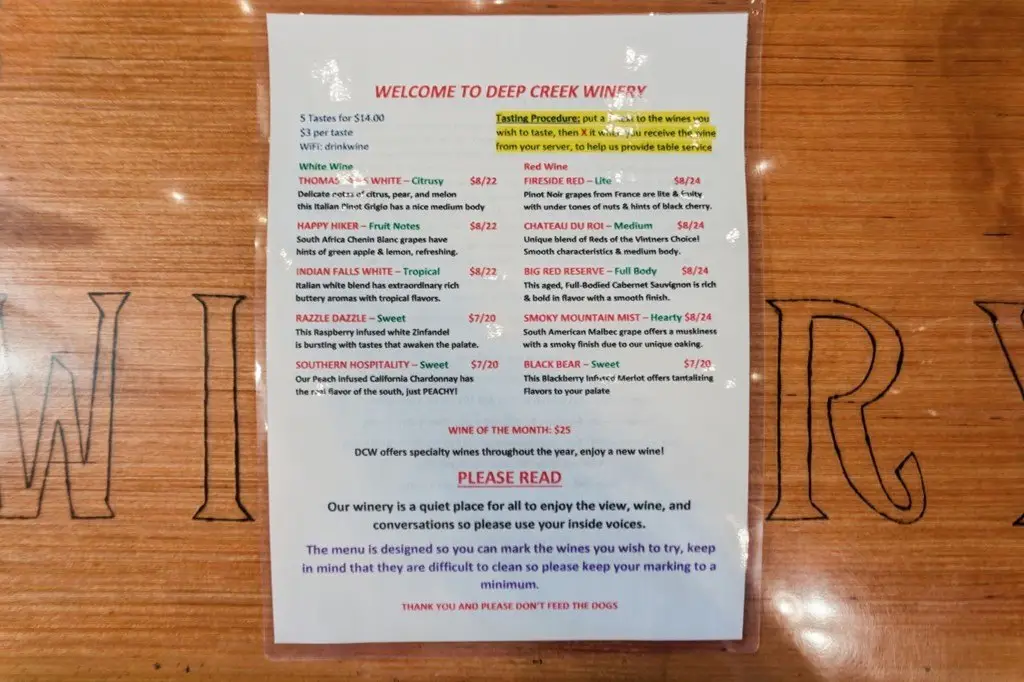 WELCOME TO DEEP CREEK WINERY
5 Tastes for $14.00
$3 per taste
WiFi: drinkwine
Tasting Procedure: put a to the wines you
wish to taste, then X it when you receive the wine
from your server, to help us provide table service
White Wine
THOMAS WHITE – Citrusy $8/22
Delicate notes of citrus, pear, and melon
this Italian Pinot Grigio has a nice medium body
HAPPY HIKER – Fruit Notes $8/22
South Africa Chenin Blanc grapes have
hints of green apple & lemon, refreshing.
INDIAN FALLS WHITE – Tropical $8/22
Italian white blend has extraordinary rich
buttery aromas with tropical flavors.
RAZZLE DAZZLE – Sweet $7/20
This Raspberry infused white Zinfandel
is bursting with tastes that awaken the palate.
SOUTHERN HOSPITALITY – Sweet $7/20
Our Peach infused California Chardonnay has
the real flavor of the south, just PEACHY!
Red Wine
FIRESIDE RED – Lite $8/24
Pinot Noir grapes from France are lite & fruity
with under tones of nuts & hints of black cherry.
CHATEAU DU ROI – Medium $8/24
Unique blend of Reds of the Vintners Choice!
Smooth characteristics & medium body.
BIG RED RESERVE – Full Body $8/24
This aged, Full-Bodied Cabernet Sauvignon is rich
& bold in flavor with a smooth finish.
SMOKY MOUNTAIN MIST – Hearty $8/24
South American Malbec grape offers a muskiness
with a smoky finish due to our unique oaking.
BLACK BEAR – Sweet $7/20
This Blackberry Infused Merlot offers tantalizing
Flavors to your palate
WINE OF THE MONTH: $25
DCW offers specialty wines throughout the year, enjoy a new wine!
PLEASE READ
Our winery is a quiet place for all to enjoy the view, wine, and
conversations so please use your inside voices.
The menu is designed so you can mark the wines you wish to try, keep
in mind that they are difficult to clean so please keep your marking to a
minimum.
THANK YOU AND PLEASE DON'T FEED THE DOGS
WI RY